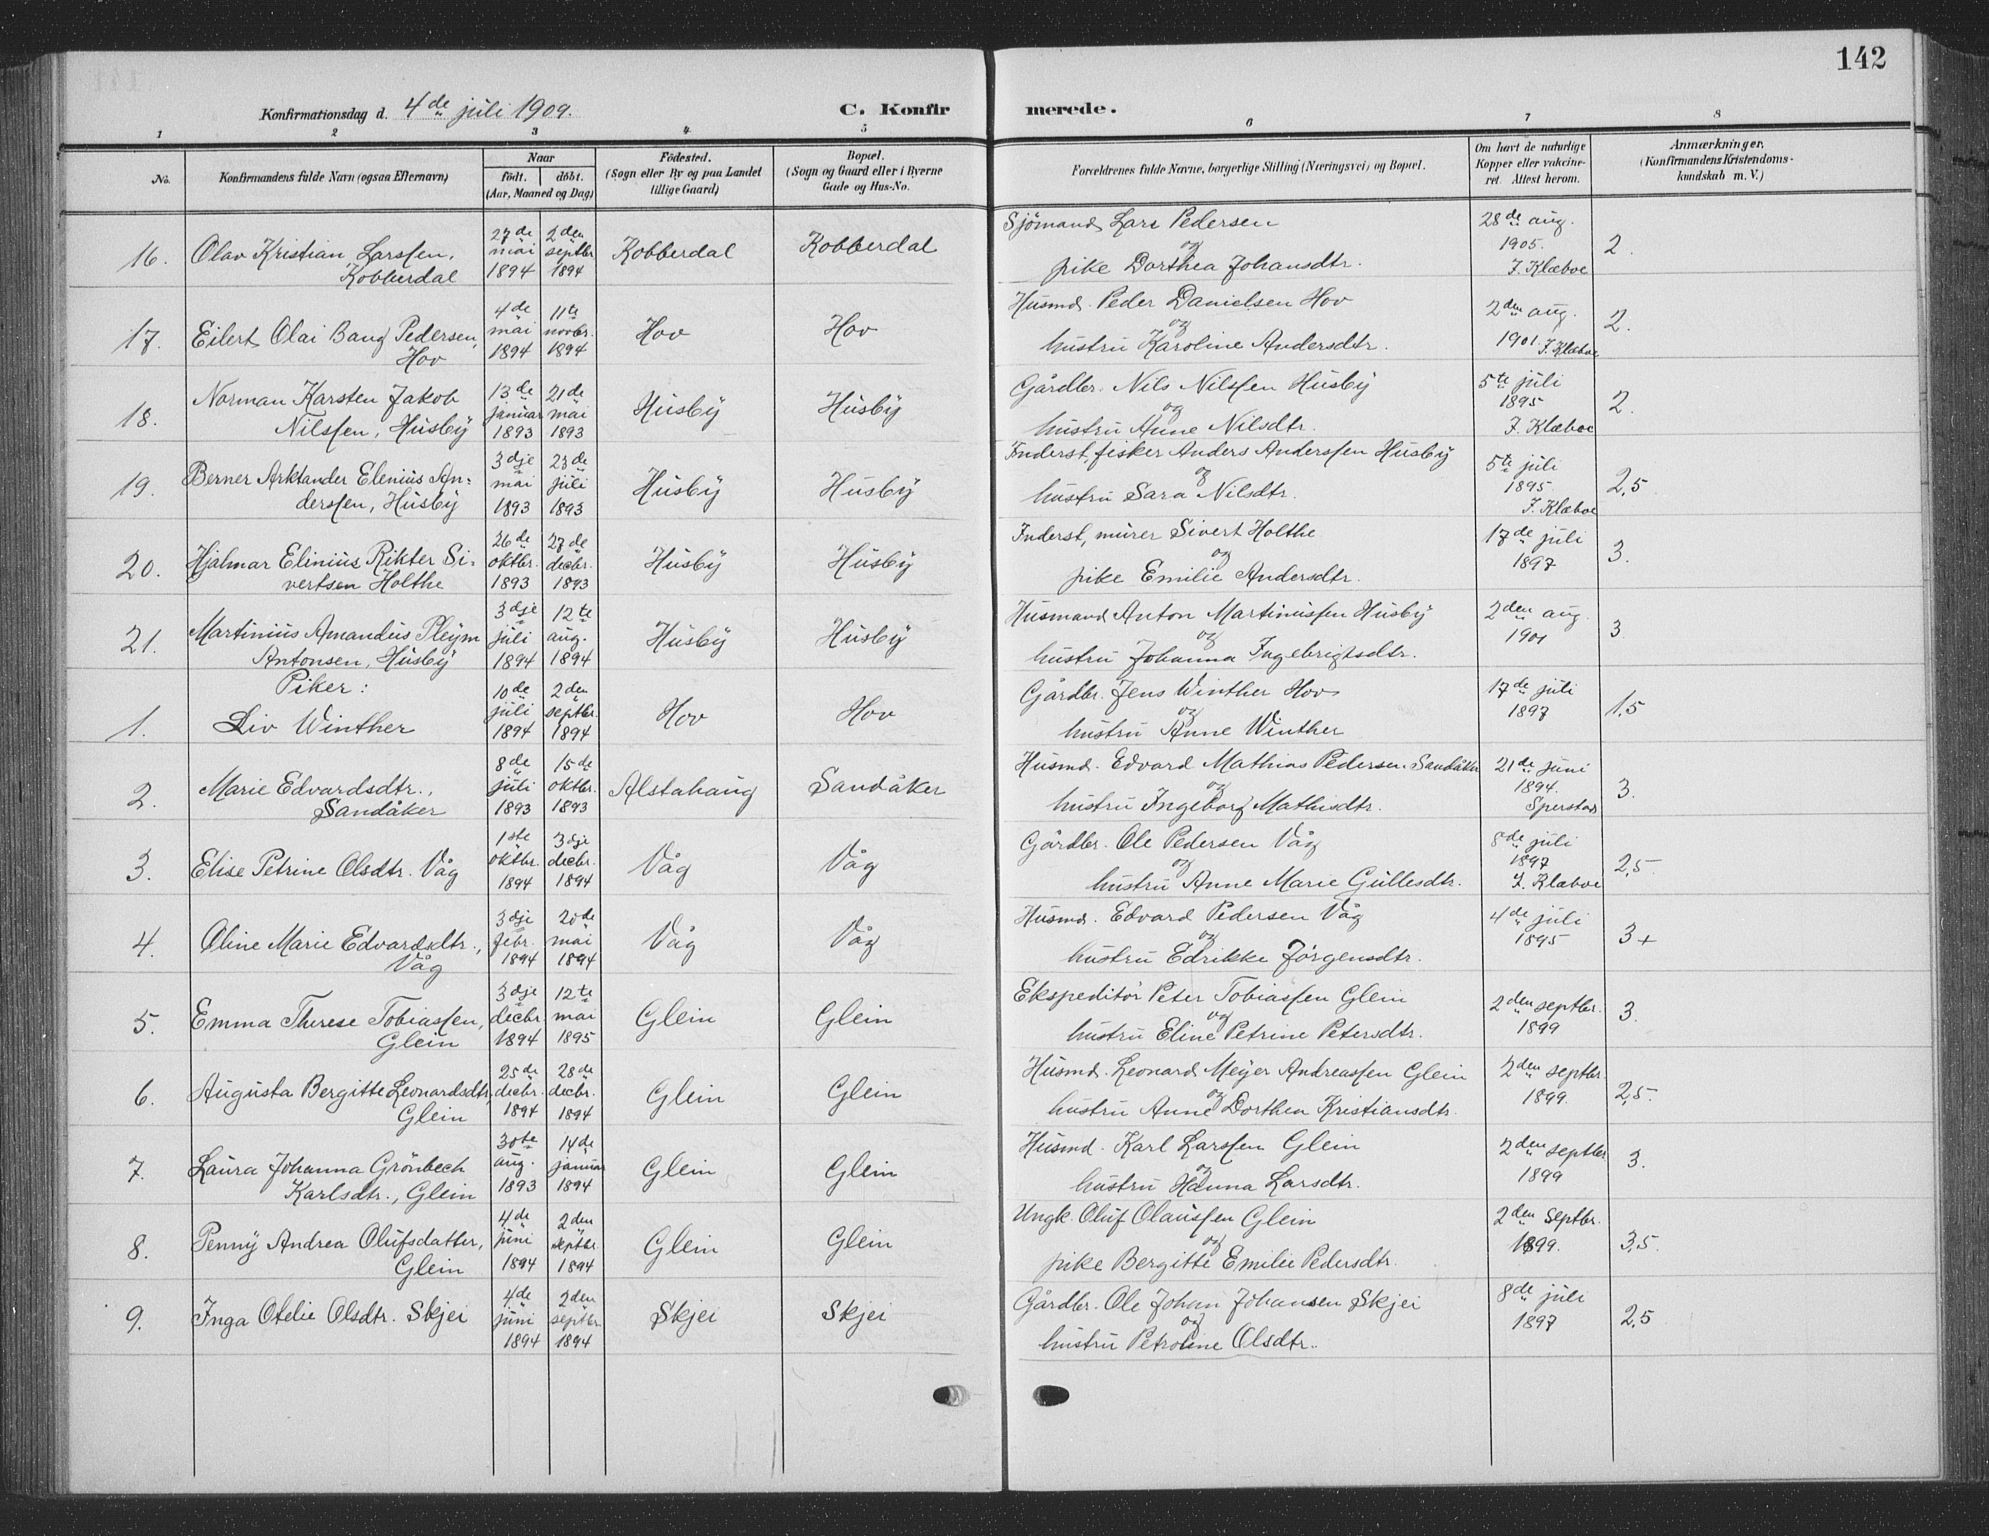 142
Konfirmationsdag d. 4de juli 1909.
C. Konfirmerede.
1 2 3 4 5 6 7 8
No.
Konfirmandens fulde Navn (ogsaa Efternavn)
Naar
født. døbt.
(Aar, Maaned og Dag)
Fødested.
(Sogn eller By og paa Landet
tillige Gaard)
Bopæl.
(Sogn og Gaard eller i Byerne
Gade og Hus-No.
Forældrenes fulde Navne, borgerlige Stilling (Næringsvei) og Bopæl.
Om havt de naturlige
Kopper eller vakcine-
ret. Attest herom.
Anmærkninger.
(Konfirmandens Kristendoms-
kundskab m. V.)
16. Olav Kristian Larssen,
Kobberdal
27de mai 1894
2den septbr 1894
Kobberdal
Kobberdal
Sjömand Lars Pedersen
og
pike Dorthea Johansdtr.
28de aug.
1905.
J. Klæboe
2.
17. Eilert Olai Bang Pedersen,
Hov
4de mai 1894
11te novbr. 1894
Hov
Hov
Husmd. Peder Danielsen Hov
og
hustru Karoline Andersdtr.
2den aug.
1901. J. Klæboe
2.
18. Norman Karsten Jakob
Nilssen, Husby
13de januar 1893
21de mai 1893
Husby
Husby
Gårdbr. Nils Nilssen Husby
og
hustru Anne Nilsdtr.
5te juli
1895
J. Klæboe
2.
19. Berner Arktander Elenius An-
derssen, Husby
3dje mai 1893
23de juli 1893
Husby
Husby
Inderst, fisker Anders Anderssen Husby
og
hustru Sara Nilsdtr.
5te juli
1895
J. Klæboe
2,5
20. Hjalmar Elinius Rikter Si-
vertsen Holthe
26de oktbr. 1893
27de decbr. 1893
Husby
Husby
Inderst, murer Sivert Holthe
og
pike Emilie Andersdtr.
17de juli
1897
3.
21. Martinius Amandus Pleym
Antonsen, Husby
3dje juli 1894
12te aug. 1894
Husby
Husby
Husmand Anton Martinussen Husby
og
hustru Johanna Ingebrigtsdtr.
2den aug.
1901
3
Piker:
1. Liv Winther
10de juli 1894
2den septbr. 1894
Hov
Hov
Gårdbr. Jens Winther Hov
og
hustru Anne Winther
17de juli
1897
1,5
2. Marie Edvardsdtr.,
Sandåker
8de juli 1893
15de oktbr. 1893
Alstahaug
Sandåker
Husmd. Edvard Mathias Pedersen Sandåker
og
hustru Ingeborg Mathisdtr.
21de juni
1894.
Sperstad
3.
3. Elise Petrine Olsdtr. Våg
1ste oktbr. 1894
3dje decbr. 1894
Våg
Våg
Gårdbr. Ole Pedersen Våg
og
hustru Anne Marie Gullesdtr.
8de juli
1897
J. Klæboe
2,5
4. Oline Marie Edvardsdtr.,
Våg
3dje febr. 1894
20de mai 1894
Våg
Våg
Husmd. Edvard Pedersen Våg
og
hustru Edrikke Jörgensdtr.
4de juli
1895
3+
5. Emma Therese Tobiassen,
Glein
3dje decbr. 1894
12te mai 1895
Glein
Glein
Ekspeditör Peter Tobiassen Glein
og
hustru Eline Petrine Petersdtr.
2den septbr.
1899
3.
6. Augusta Bergitte Leonardsdtr,
Glein
25de decbr. 1894
28de decbr. 1894
Glein
Glein
Husmd. Leonard Meyer Andreassen Glein
og
hustru Anne Dorthea Kristiansdtr.
2den septbr.
1899.
2,5.
7. Laura Johanna Grönbech
Karlsdtr., Glein
30te aug. 1893
14de januar 1894
Glein
Glein
Husmd. Karl Larssen Glein
og
hustru Hanna Larsdtr.
2den septbr
1899
3.
8. Penny Andrea Olufsdatter,
Glein
4de juni 1894
2den septbr. 1894
Glein
Glein
Ungk. Oluf Olaussen Glein
og
pike Bergitte Emilie Pedersdtr.
2den septbr.
1899.
3,5.
9. Inga Otelie Olsdtr. Skjei
4de juni 1894
2den septbr. 1894
Skjei
Skjei
Gårdbr. Ole Johan Johansen Skjei
og
hustru Petroline Olsdtr.
8de juli
1897
2,5